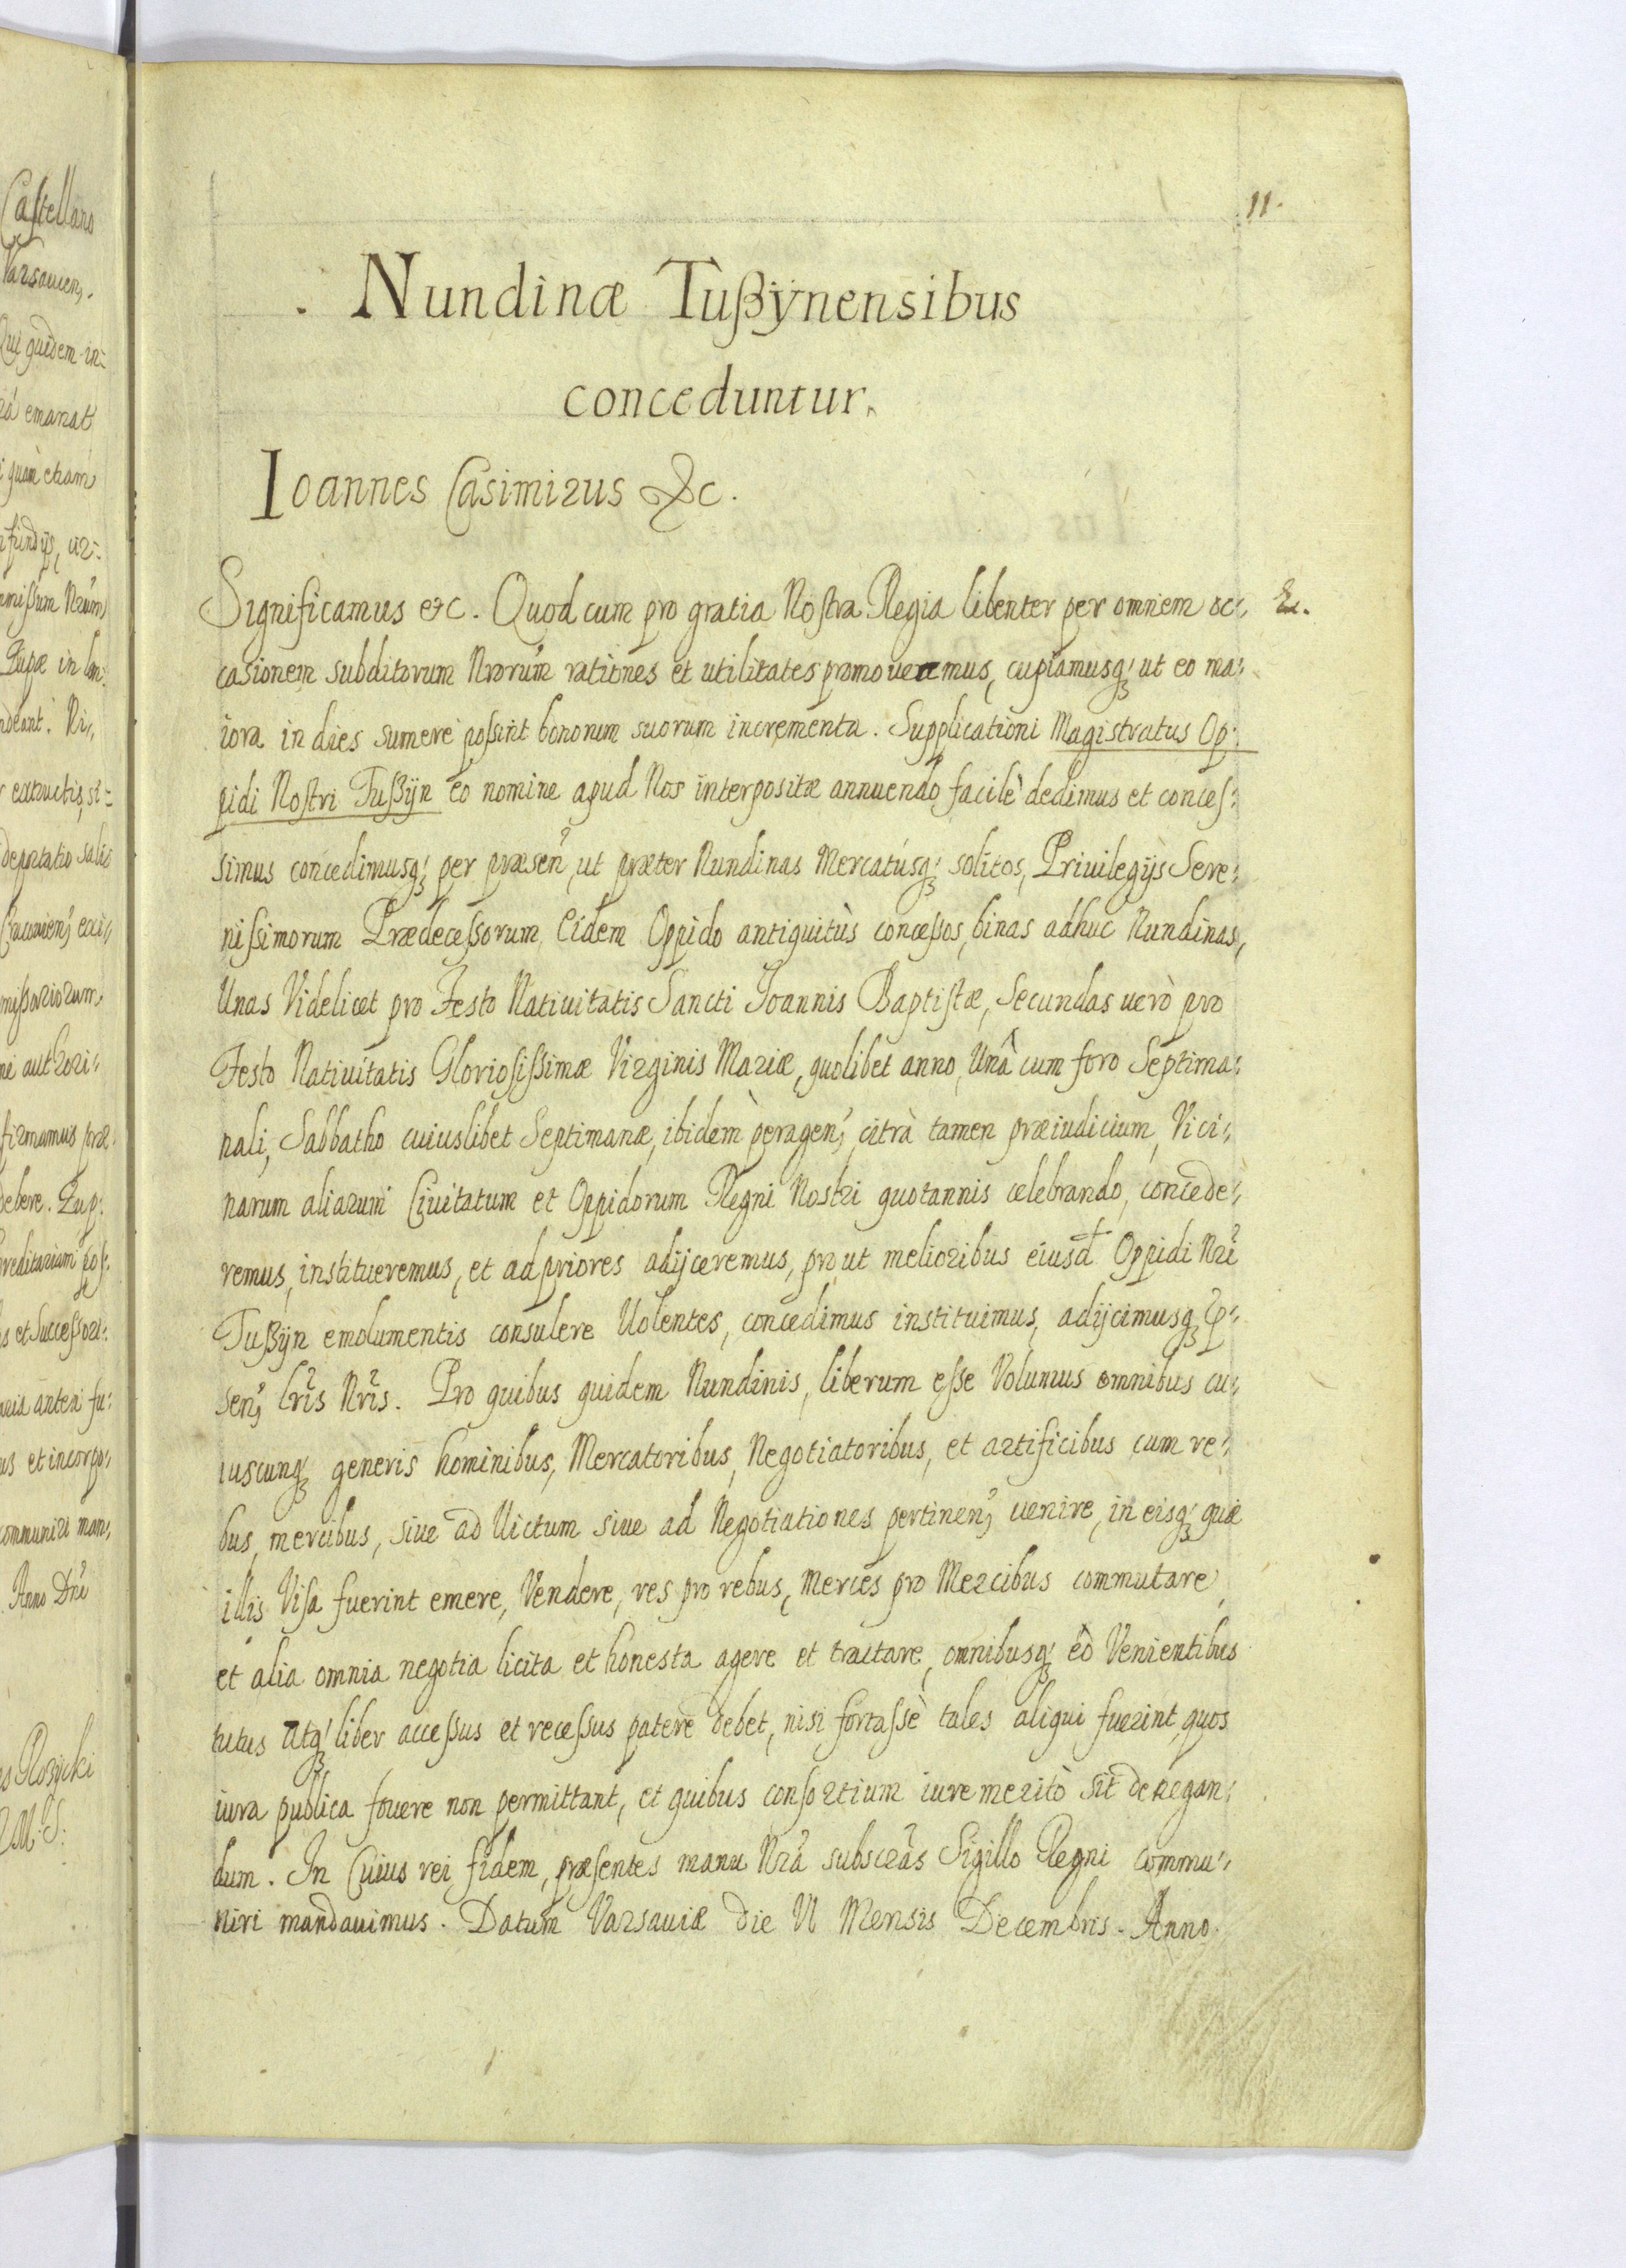 11.
Nundinæ Tußÿnensibus
conceduntur.
Ioannes Casimirus &c.
Significamus etc. Quod cum pro gratia Nostra Regia libenter per omnem oc⸗
casionem subditorum Nrorum rationes et utilitates promoveamus, cupiamusq; ut eo ma⸗
iora in dies sumere possint bonorum suorum incrementa. Supplicationi Magistratus Op⸗
pidi Nostri Tußÿn eo nomine apud Nos interpositæ annuendo, facilè dedimus et conces⸗
simus concedimusq; per præsen, ut præter Nundinas Mercatusq; solitos, Priuilegijs Sere⸗
nissimorum Prædecessorum Eidem Oppido antiquitùs concessos, binas adhuc Nundinas,
Unas Videlicet pro Festo Natiuitatis Sancti Joannis Baptistæ, Secundas uerò pro
Festo Natiuitatis Gloriosissimæ Virginis Mariæ, quolibet anno, Unâ cum foro Septima⸗
nali, Sabbatho cuiuslibet Septimanæ, ibidem peragen, citrà tamen præiudicium, Vici⸗
narum aliarum Ciuitatum et Oppidorum Regni Nostri quotannis celebrando, concede⸗
remus, institueremus, et ad priores adijceremus, prout melioribus eiusd Oppidi Nri
Tußÿn emolumentis consulere Uolentes, concedimus instituimus, adijcimusq; p⸗
sen, lris Nris. Pro quibus quidem Nundinis, liberum esse Volumus omnibus cu⸗
iuscunq; generis hominibus, Mercatoribus, Negotiatoribus, et artificibus cum re⸗
bus, mercibus, siue ad Uictum siue ad Negotiationes pertinen, uenire, in eisq; quæ
illis Visa fuerint emere, Vendere, res pro rebus, Merces pro Mercibus commutare,
et alia omnia negotia licita et honesta agere et tractare, omnibusq; eò Venientibus
tutus Atq; liber accessus et recessus patere debet, nisi fortassè tales aliqui fuerint, quos
iura publica fouere non permittant, et quibus consortium iure meritò sit denegan⸗
dum. In Cuius rei fidem, præsentes manu Nrâ subscrâs Sigillo Regni commu⸗
niri mandauimus. Datum Varsauiæ die VI Mensis Decembris. Anno.